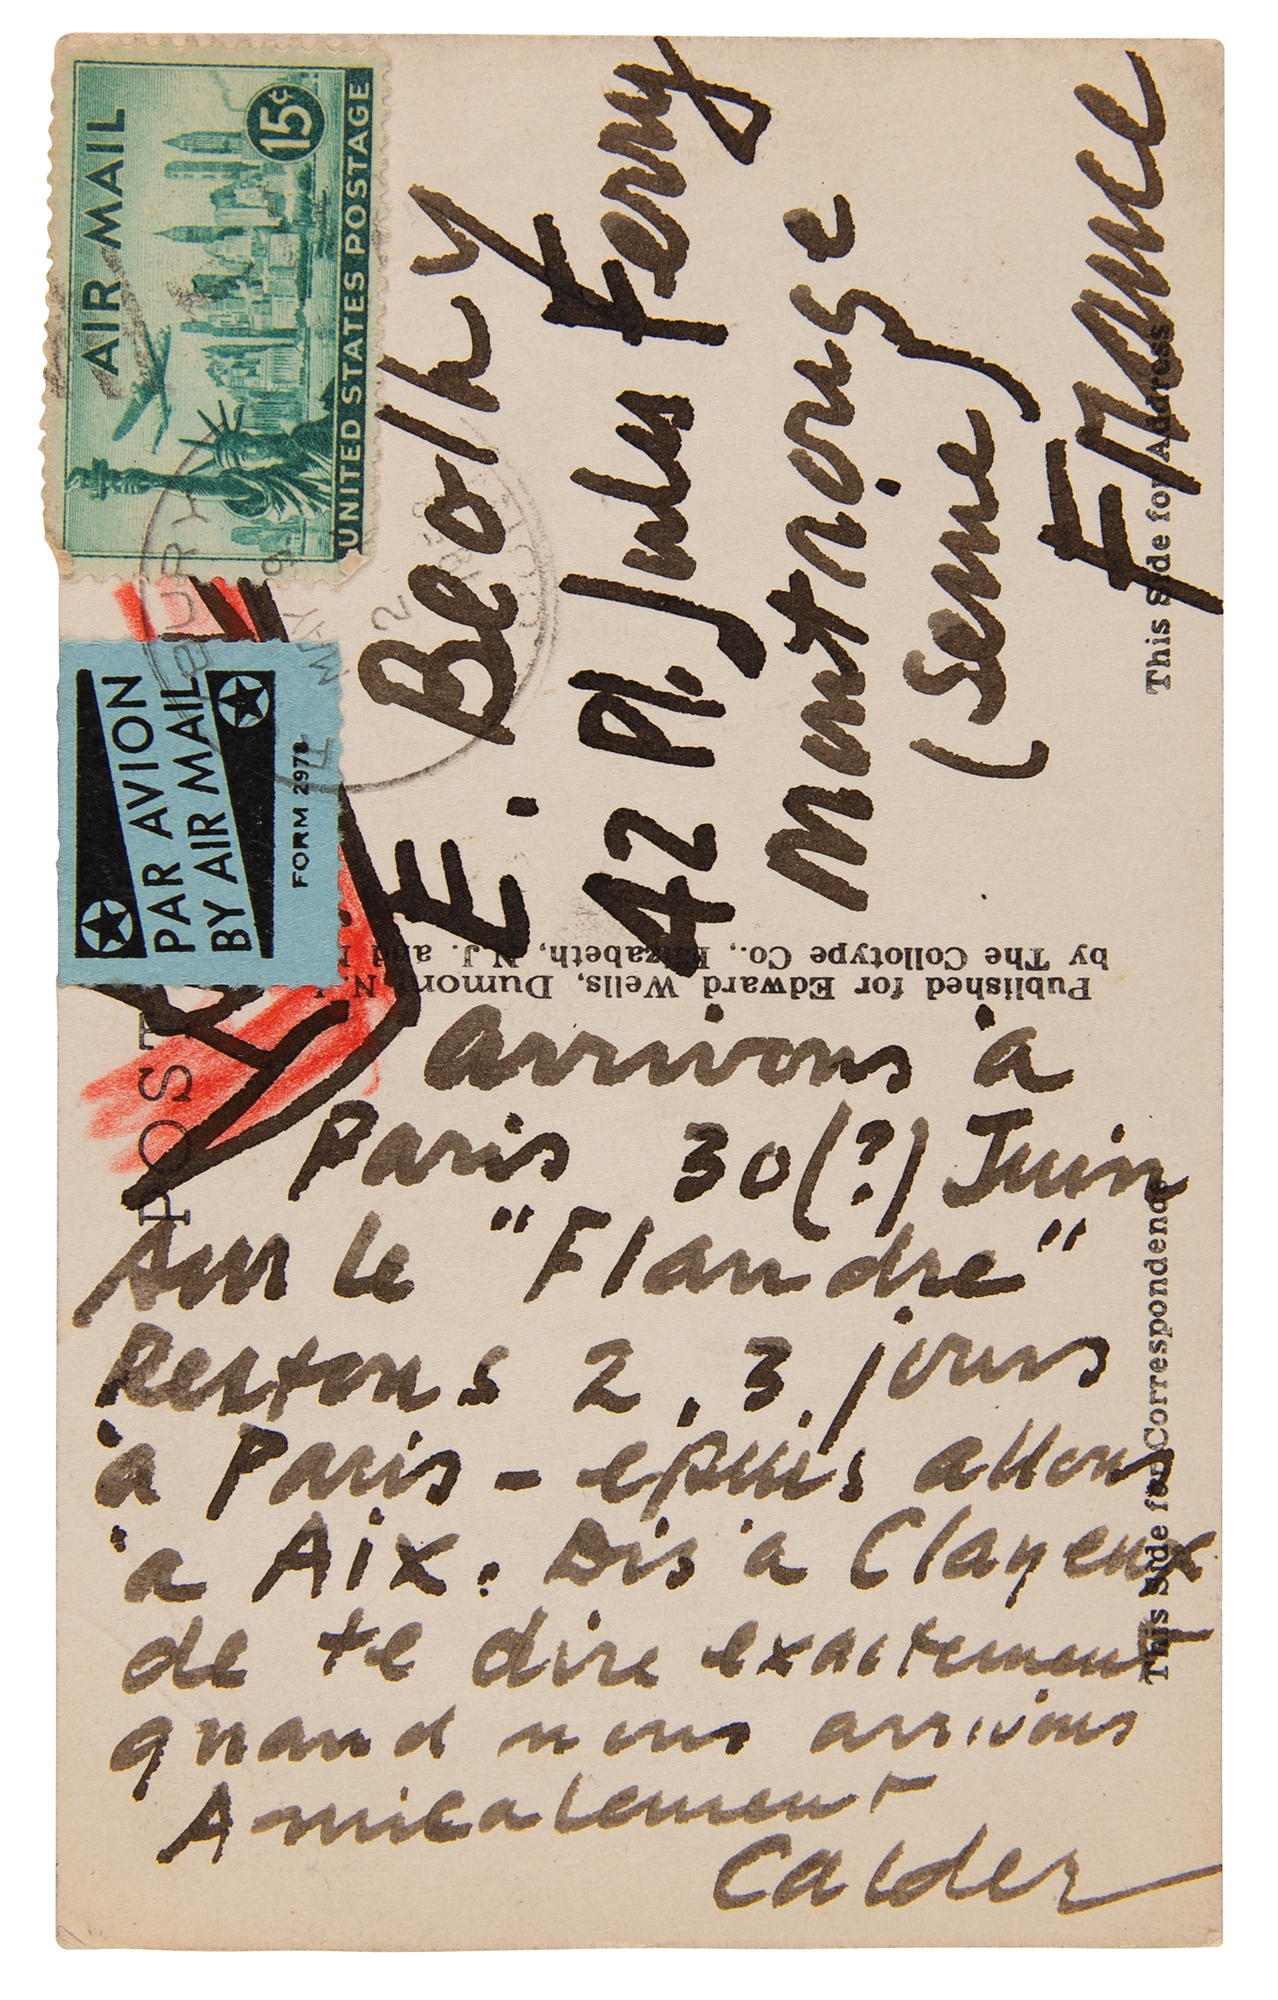 AIR MAIL
15¢
UNITED STATES POSTAGE
PAR AVION
BY AIR MAIL
FORM 2978
POST
E. Beothy
42 Pl. Jules Ferry
Montrouge
(Seine)
France
This Side for Address
Published for Edward Wells, Dumont, N.
by The Collotype Co., Elizabeth, N.J. and
arrivons à
Paris 30(?) Juin
sur le "Flandre"
Restons 2, 3 jours
à Paris - epuis allons
à Aix. Dis à Clayeux
de te dire exactement
quand nous arrivons
Amicalement
Calder
This Side for Correspondence
MAY
2